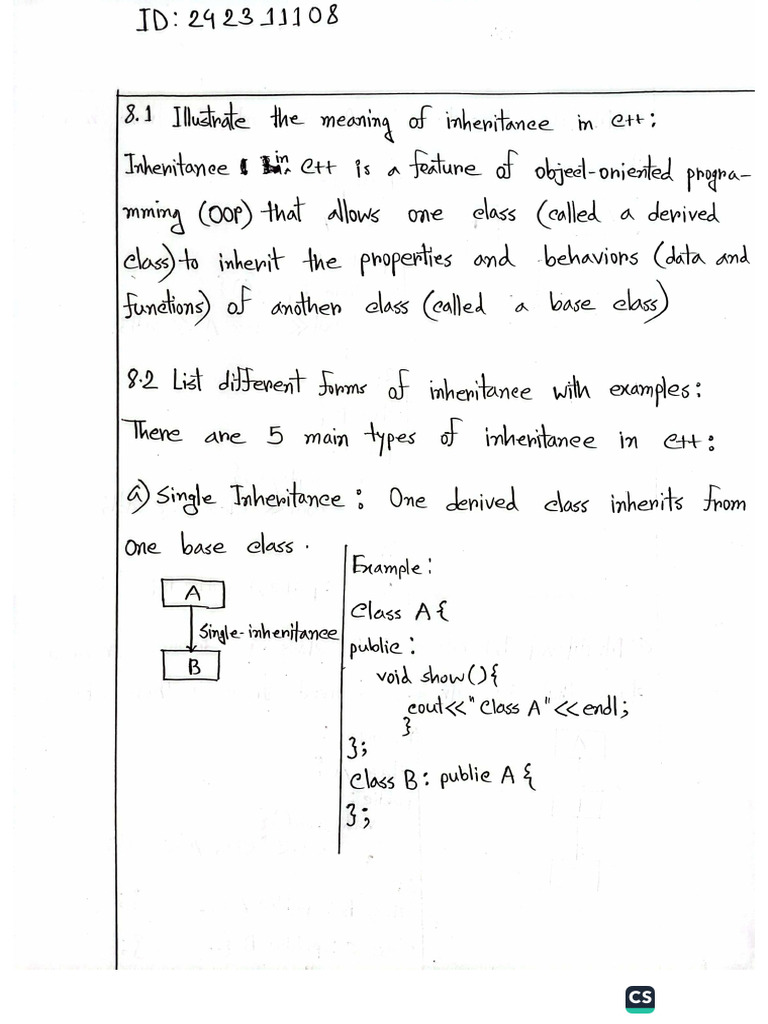 ID: 242311108
8.1 Illustrate the meaning of inheritance in C++:
Inheritance in C++ is a feature of object-oriented progra-
mming (OOP) that allows one class (called a derived
class) to inherit the properties and behaviors (data and
functions) of another class (called a base class)
8.2 List different forms of inheritance with examples:
There are 5 main types of inheritance in C++:
a) Single Inheritance: One derived class inherits from
one base class.
A
Single-inheritance
B
Example:
Class A {
public:
void show() {
cout<<"Class A"<<endl;
}
};
Class B: public A {
};
CS